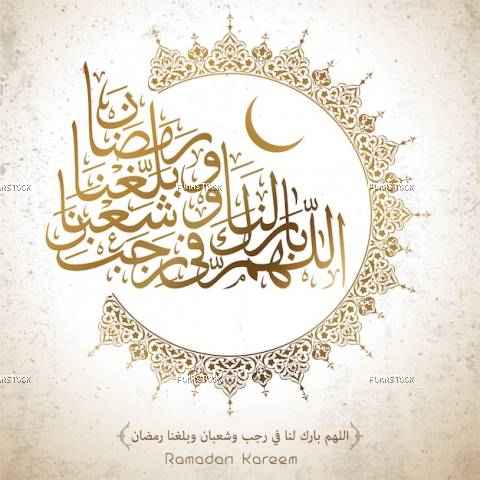 اللهم بارك لنا في رجب وشعبان وبلغنا رمضان
FUNRSTOCK FUNRSTOCK FUNRSTOCK
FUNRSTOCK FUNRSTOCK FUNRSTOCK
اللهم بارك لنا في رجب وشعبان وبلغنا رمضان
Ramadan Kareem